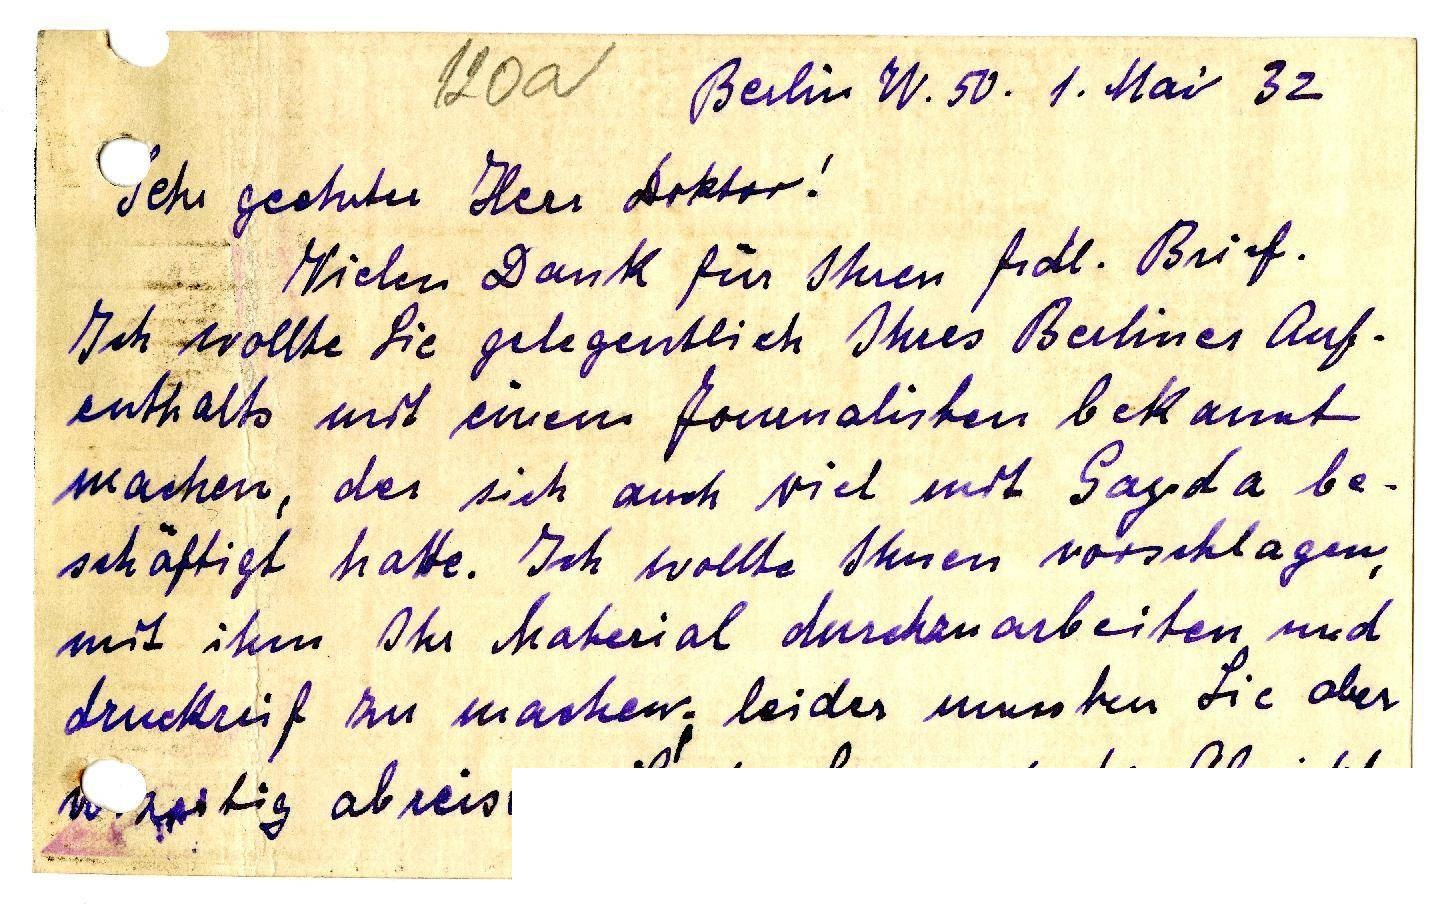 120a
Berlin W. 50. 1. Mai 32
Sehr geehrter Herr Doktor!
Vielen Dank für Ihren frdl. Brief.
Ich wollte Sie gelegentlich Ihres Berliner Auf-
enthalts mit einem Journalisten bekannt
machen, der sich auch viel mit Gagda be-
schäftigt hatte. Ich wollte Ihnen vorschlagen,
mit ihm Ihr Material durchzuarbeiten und
druckreif zu machen; leider mussten Sie aber